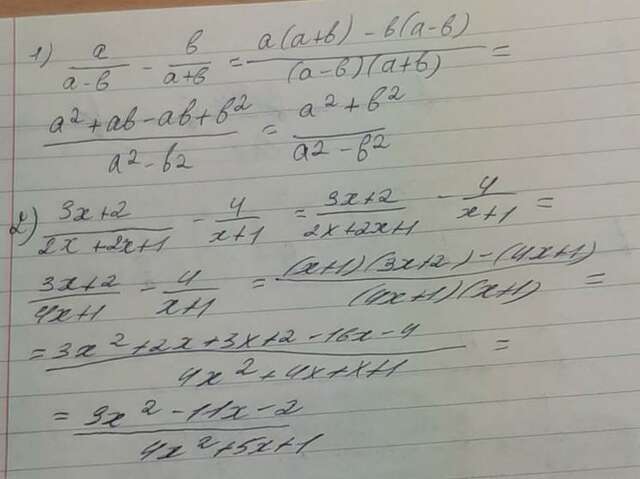 1) a/(a-в) - в/(a+в) = (a(a+в) - в(a-в))/((a-в)(a+в)) =
(a² + aв - aв + в²)/(a² - в²) = (a² + в²)/(a² - в²)
2) (3x+2)/(2x+2x+1) - 4/(x+1) = (3x+2)/(2x+2x+1) - 4/(x+1) =
(3x+2)/(4x+1) - 4/(x+1) = ((x+1)(3x+2) - (4x+1))/((4x+1)(x+1)) =
= (3x² + 2x + 3x + 2 - 16x - 4)/(4x² + 4x + x + 1) =
= (3x² - 11x - 2)/(4x² + 5x + 1)